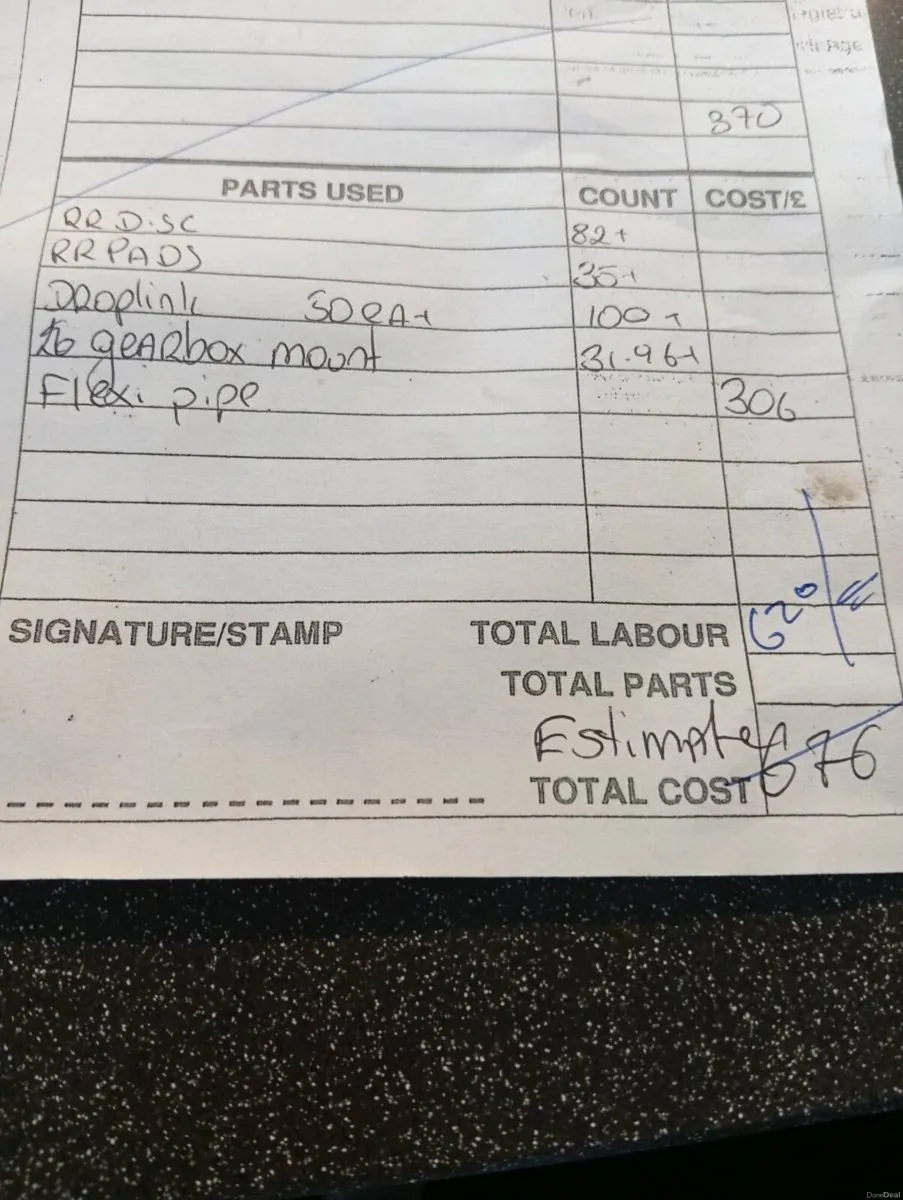 370
PARTS USED COUNT COST/£
RR DISC 82+
RR PADS 35+
Droplink 50 EA+ 100+
gearbox mount 31.96+
Flexi pipe 306
620
SIGNATURE/STAMP TOTAL LABOUR
TOTAL PARTS
Estimated 676
TOTAL COST
DoneDeal